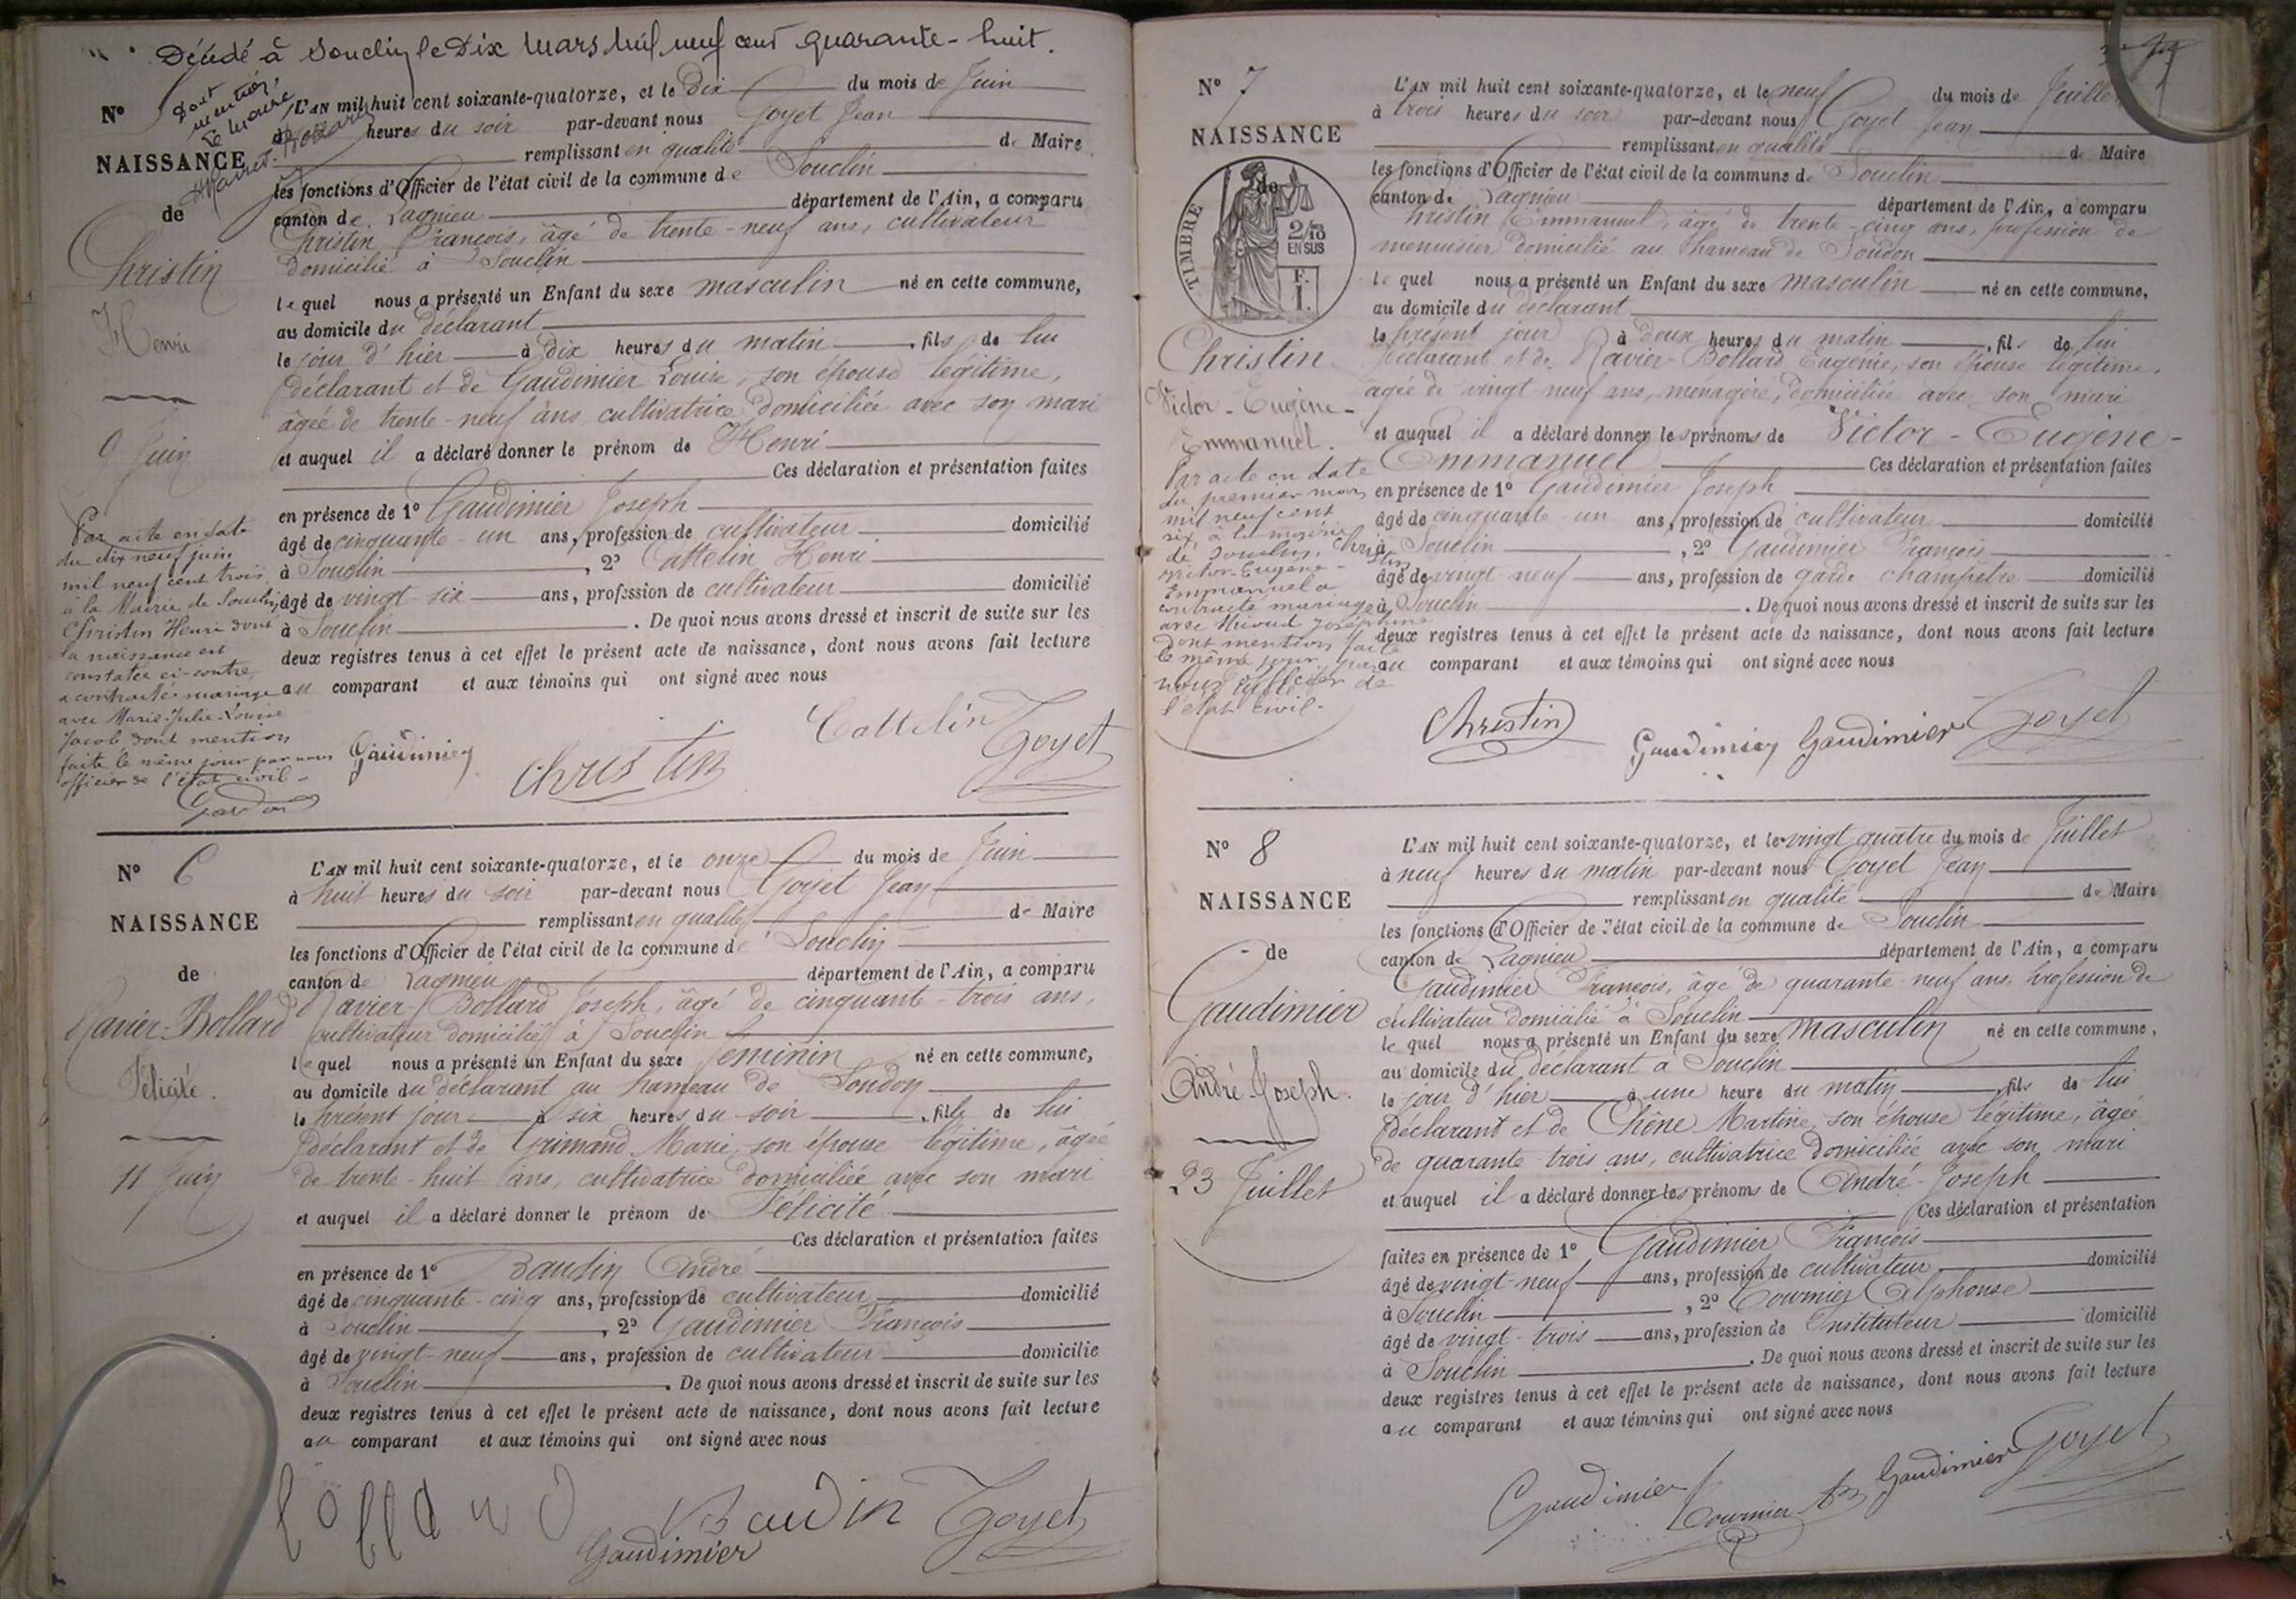 Décédé à Souclin le Dix Mars Mil neuf cent quarante-huit.
Dont
mention
Le Maire
Nº 5
NAISSANCE
de
Christin
Henri
9 Juin
L'AN mil huit cent soixante-quatorze, et le dix du mois de Juin
heures du soir par-devant nous Goyet Jean
remplissant en qualité de Maire
les fonctions d'Officier de l'état civil de la commune de Souclin
canton de Lagnieu département de l'Ain, a comparu
Christin François, âgé de trente-neuf ans, cultivateur
domicilié à Souclin
lequel nous a présenté un Enfant du sexe masculin né en cette commune,
au domicile du déclarant
le jour d'hier à dix heures du matin, fils de lui
déclarant et de Gaudimier Louise, son épouse légitime,
âgée de trente-neuf ans, cultivatrice domiciliée avec son mari
et auquel il a déclaré donner le prénom de Henri
Ces déclaration et présentation faites
en présence de 1º Gaudimier Joseph
âgé de cinquante-un ans, profession de cultivateur domicilié
à Souclin, 2º Cattelin Henri
âgé de vingt-six ans, profession de cultivateur domicilié
à Souclin. De quoi nous avons dressé et inscrit de suite sur les
deux registres tenus à cet effet le présent acte de naissance, dont nous avons fait lecture
au comparant et aux témoins qui ont signé avec nous
Par acte en date
du dix neuf juin
mil neuf cent trois
à la Mairie de Souclin,
Christin Henri dont
la naissance est
constatée ci-contre,
a contracté mariage
avec Marie-Julie-Louise
Jacob dont mention
faite le même jour par nous
officier de l'état civil -
Gaudimier Christin Cattelin Goyet
Nº 6
NAISSANCE
de
Ravier-Bollard
Félicité.
11 Juin
L'AN mil huit cent soixante-quatorze, et le onze du mois de Juin
à huit heures du soir par-devant nous Goyet Jean
remplissant en qualité de Maire
les fonctions d'Officier de l'état civil de la commune de Souclin
canton de Lagnieu département de l'Ain, a comparu
Ravier-Bollard Joseph, âgé de cinquante-trois ans,
cultivateur domicilié à Souclin
lequel nous a présenté un Enfant du sexe féminin né en cette commune,
au domicile du déclarant au hameau de Soudon
le présent jour à six heures du soir, fille de lui
déclarant et de Grimand Marie, son épouse légitime, âgée
de trente-huit ans, cultivatrice domiciliée avec son mari
et auquel il a déclaré donner le prénom de Félicité
Ces déclaration et présentation faites
en présence de 1º Baudin André
âgé de cinquante-cinq ans, profession de cultivateur domicilié
à Souclin, 2º Gaudimier François
âgé de vingt-neuf ans, profession de cultivateur domicilié
à Souclin. De quoi nous avons dressé et inscrit de suite sur les
deux registres tenus à cet effet le présent acte de naissance, dont nous avons fait lecture
au comparant et aux témoins qui ont signé avec nous
bollard Baudin Goyet
Gaudimier
Nº 7
NAISSANCE
de
TIMBRE
2/10
EN SUS
F.
I.
Christin
Victor-Eugène-
Emmanuel.
L'AN mil huit cent soixante-quatorze, et le neuf du mois de Juillet
à trois heures du soir par-devant nous Goyet Jean
remplissant en qualité de Maire
les fonctions d'Officier de l'état civil de la commune de Souclin
canton de Lagnieu département de l'Ain, a comparu
Christin Emmanuel, âgé de trente-cinq ans, profession de
menuisier domicilié au hameau de Soudon
lequel nous a présenté un Enfant du sexe masculin né en cette commune,
au domicile du déclarant
le présent jour à deux heures du matin, fils de lui
déclarant et de Ravier Bollard Eugénie, son épouse légitime,
âgée de vingt-neuf ans, ménagère, domiciliée avec son mari
et auquel il a déclaré donner les prénoms de Victor-Eugène-
Emmanuel Ces déclaration et présentation faites
en présence de 1º Gaudimier Joseph
âgé de cinquante-un ans, profession de cultivateur domicilié
à Souclin, 2º Gaudimier François
âgé de vingt-neuf ans, profession de garde champêtre domicilié
à Souclin. De quoi nous avons dressé et inscrit de suite sur les
deux registres tenus à cet effet le présent acte de naissance, dont nous avons fait lecture
au comparant et aux témoins qui ont signé avec nous
Par acte en date
du premier mars
mil neuf cent
six, à la mairie
de Souclin, Christin
Victor-Eugène-
Emmanuel a
contracté mariage
avec Joséphine
dont mention faite
le même jour par
nous officier de
l'état civil.
Christin Gaudimier Gaudimier Goyet
Nº 8
NAISSANCE
de
Gaudimier
André Joseph.
23 Juillet
L'AN mil huit cent soixante-quatorze, et le vingt-quatre du mois de Juillet
à neuf heures du matin par-devant nous Goyet Jean
remplissant en qualité de Maire
les fonctions d'Officier de l'état civil de la commune de Souclin
canton de Lagnieu département de l'Ain, a comparu
Gaudimier François, âgé de quarante-neuf ans, profession de
cultivateur domicilié à Souclin
lequel nous a présenté un Enfant du sexe masculin né en cette commune,
au domicile du déclarant à Souclin
le jour d'hier à une heure du matin, fils de lui
déclarant et de Chêne Martine, son épouse légitime, âgée
de quarante-trois ans, cultivatrice domiciliée avec son mari
et auquel il a déclaré donner les prénoms de André-Joseph
Ces déclaration et présentation
faites en présence de 1º Gaudimier François
âgé de vingt-neuf ans, profession de cultivateur domicilié
à Souclin, 2º Cournier Alphonse
âgé de vingt-trois ans, profession de Instituteur domicilié
à Souclin. De quoi nous avons dressé et inscrit de suite sur les
deux registres tenus à cet effet le présent acte de naissance, dont nous avons fait lecture
au comparant et aux témoins qui ont signé avec nous
Gaudimier Cournier Gaudimier Goyet